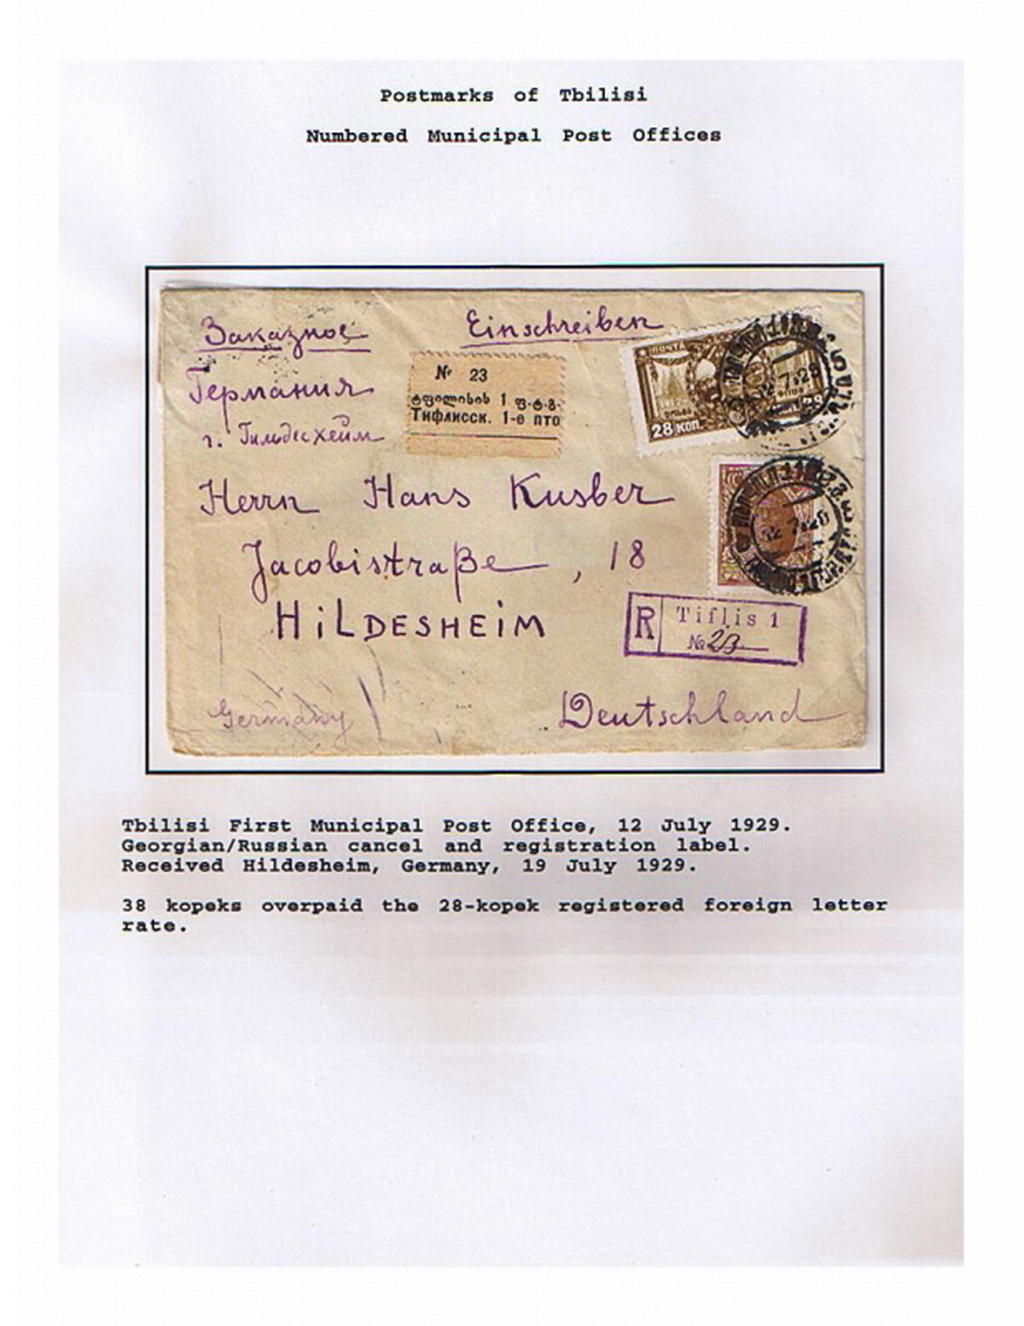 Postmarks of Tbilisi
Numbered Municipal Post Offices
Заказное
Einschreiben
Германия
г. Гильдесхейм
№ 23
ტფილისის 1 ფ.ტ.გ.
Тифлисск. 1-е пто
ПОЧТА
28 КОП.
28
12 7 29
Herrn Hans Kusber
Jacobistraße, 18
HiLDESHEiM
R Tiflis 1
№ 23
Germany
Deutschland
Tbilisi First Municipal Post Office, 12 July 1929.
Georgian/Russian cancel and registration label.
Received Hildesheim, Germany, 19 July 1929.
38 kopeks overpaid the 28-kopek registered foreign letter
rate.